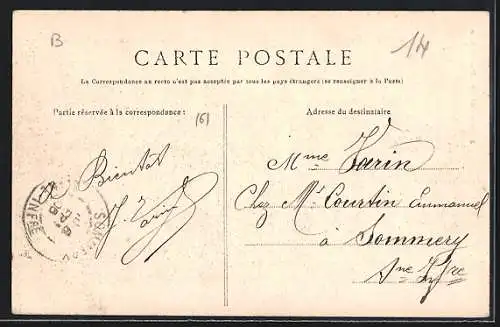 B
14
CARTE POSTALE
La Correspondance au recto n'est pas acceptée par tous les pays étrangers (se renseigner à la Poste)
Partie réservée à la correspondance :
161
Adresse du destinataire
A Bientôt
Mme Varin
Chez Mr Courtin Emmanuel
à Sommery
Sne Ifre